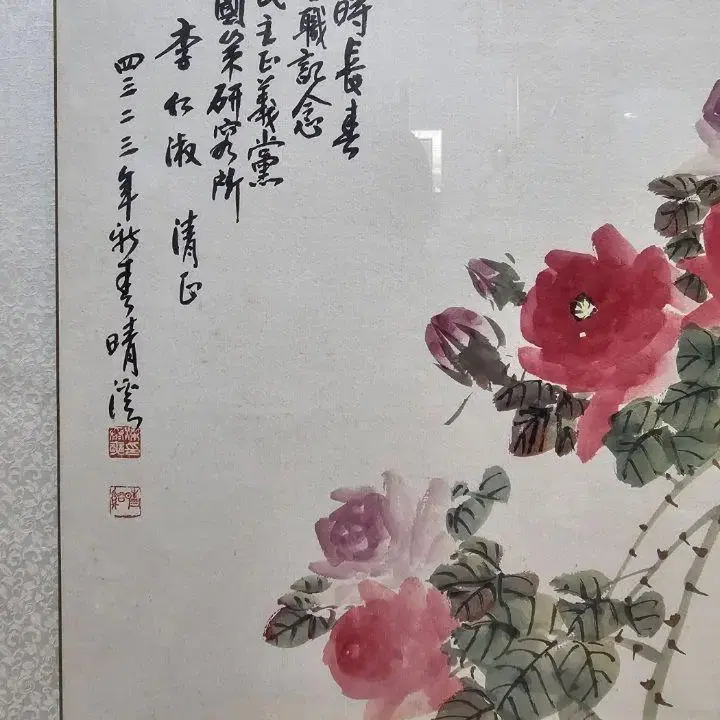 時長春
職記念
民主正義黨
國策研究所
李仁淑 清正
四三二三年新春晴溪